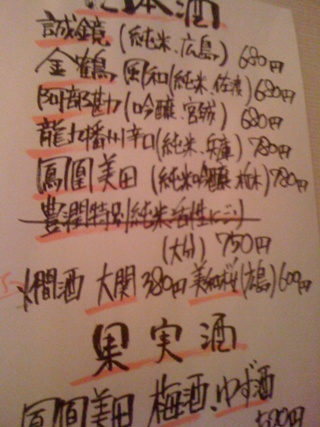 日本酒
誠鏡 (純米、広島) 680円
金鶴 風和(純米、佐渡) 680円
阿部勘 (吟醸、宮城) 680円
龍力 播州辛口(純米、兵庫) 780円
鳳凰美田 (純米吟醸、栃木) 780円
豊潤特別純米活性にごり
(大分) 750円
燗酒 大関 380円 美和桜(広島)600円
果実酒
鳳凰美田 梅酒、ゆず酒